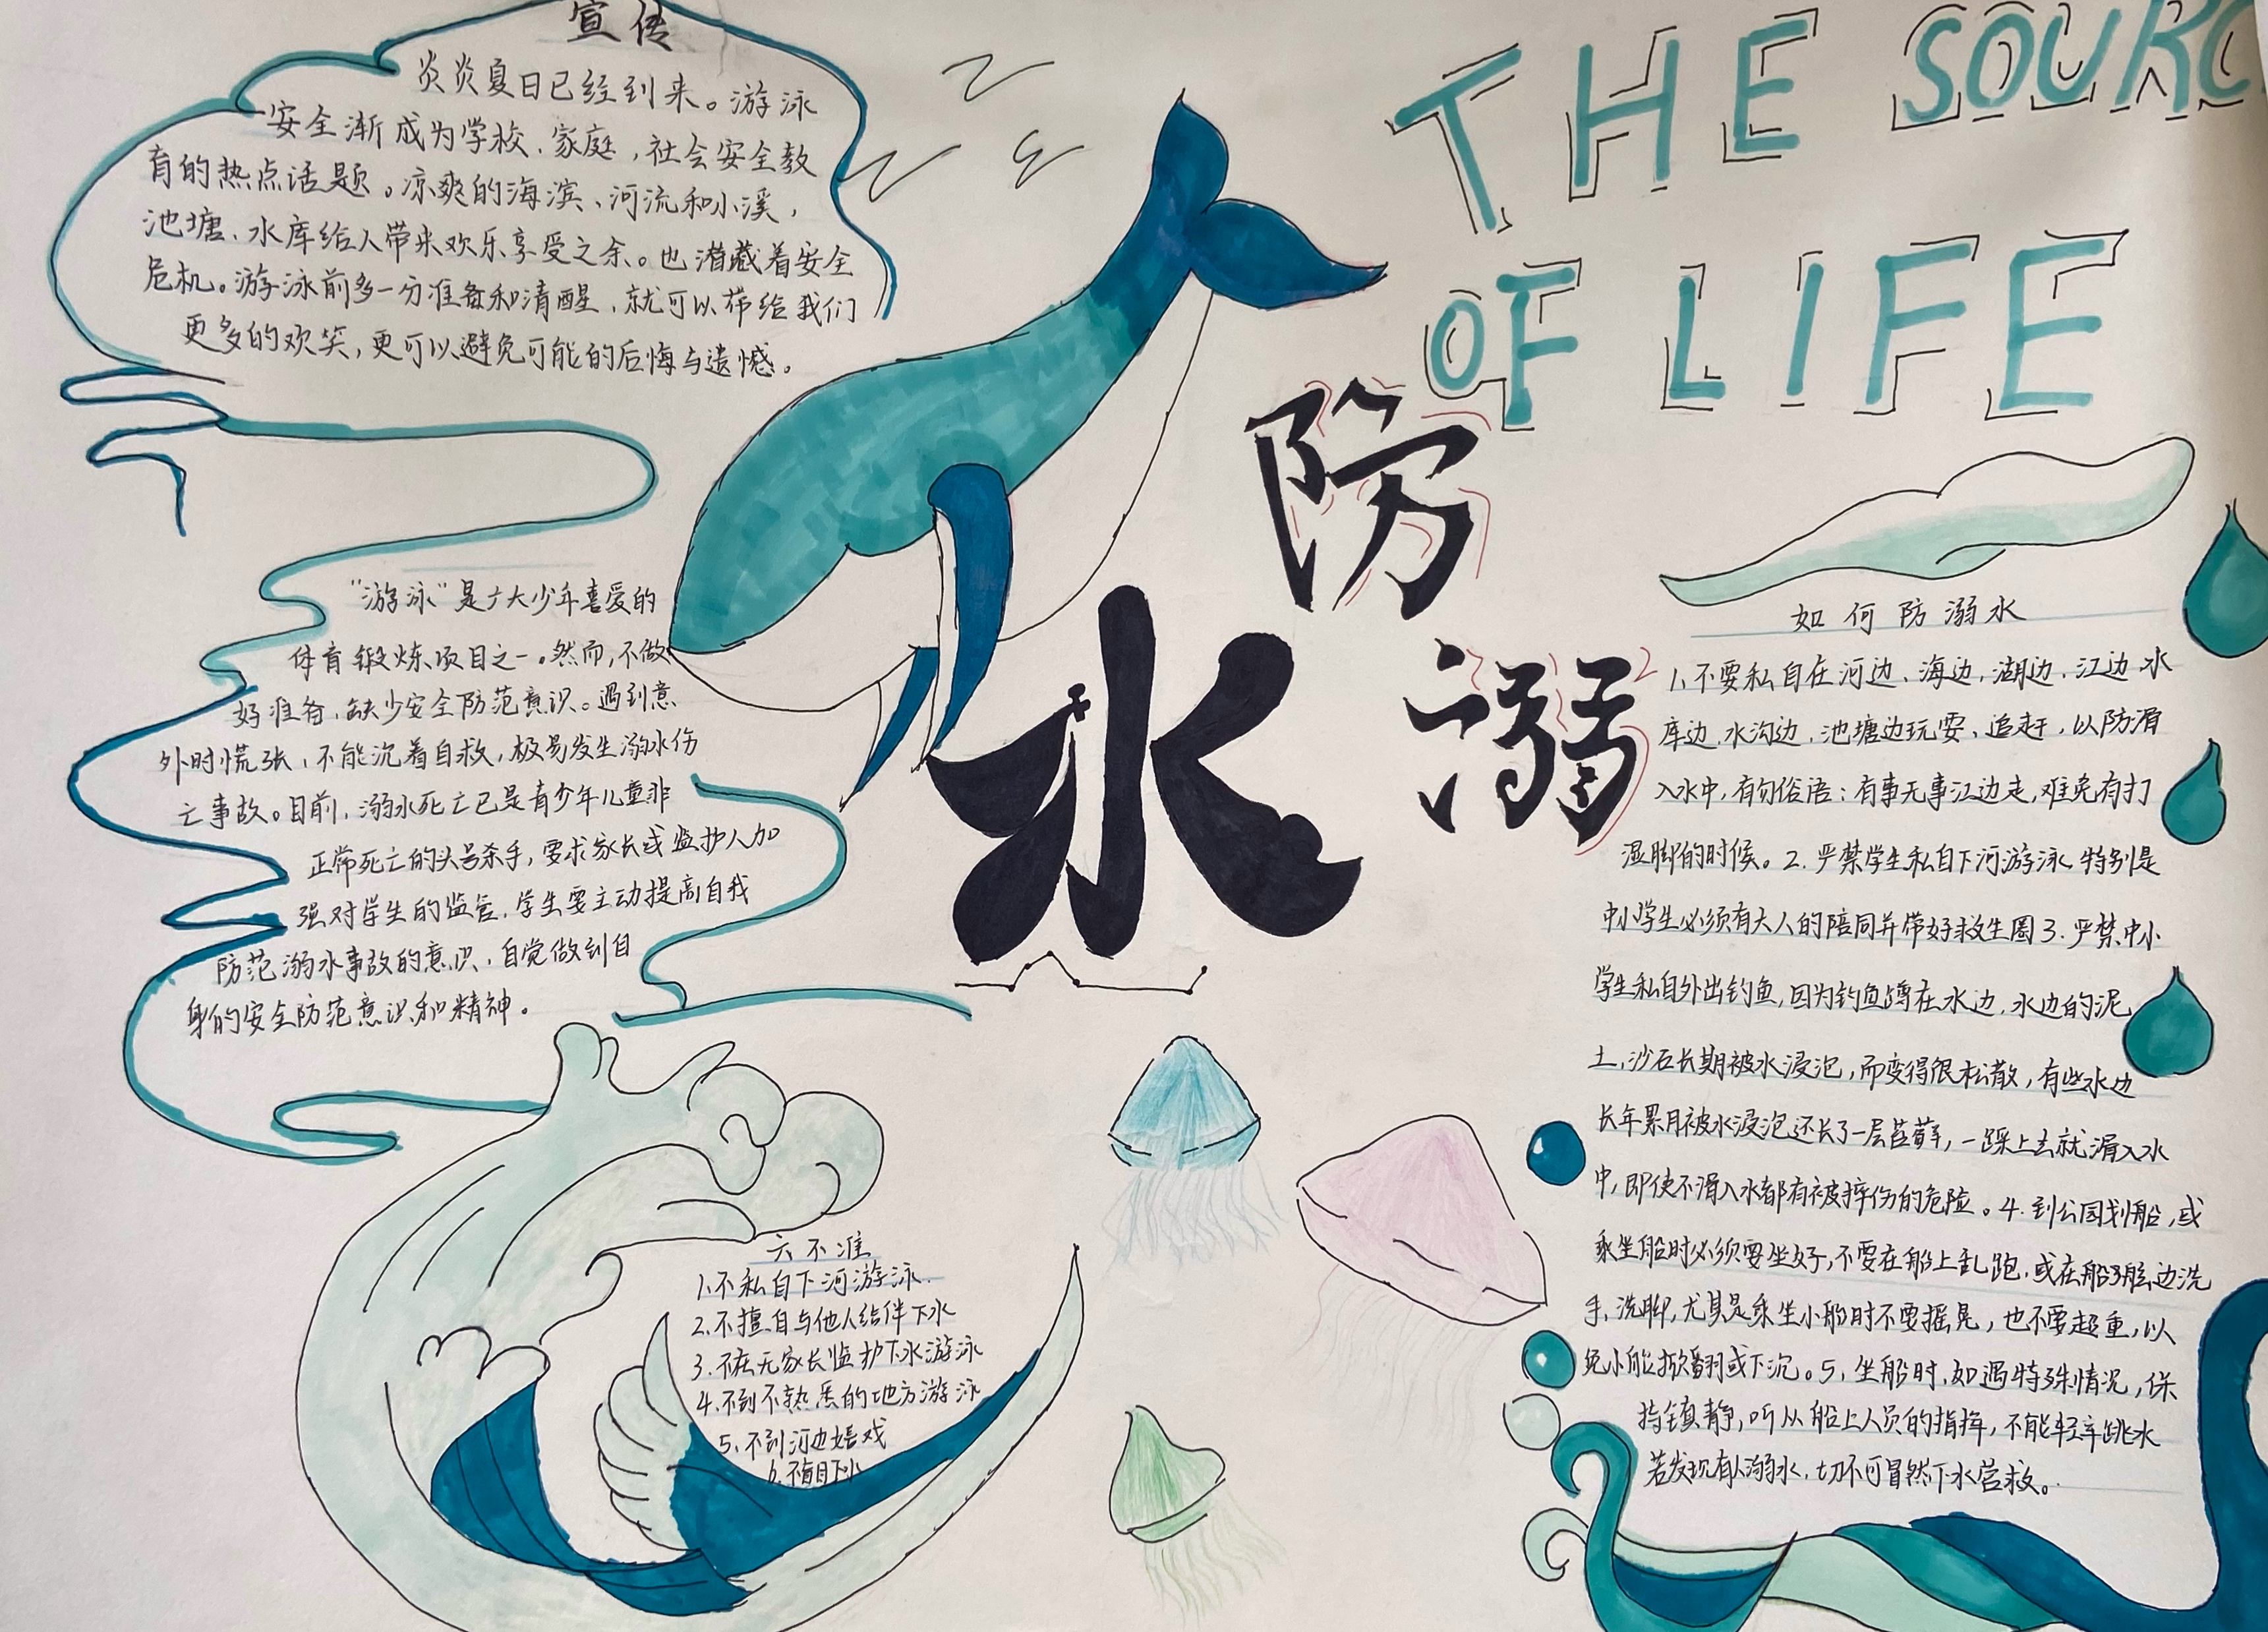 宣传
炎炎夏日已经到来。游泳
安全渐成为学校、家庭,社会安全教
育的热点话题。凉爽的海滨、河流和小溪,
池塘、水库给人带来欢乐享受之余。也潜藏着安全
危机。游泳前多一分准备和清醒,就可以带给我们
更多的欢笑,更可以避免可能的后悔与遗憾。
"游泳"是广大少年喜爱的
体育锻炼项目之一。然而,不做
好准备,缺少安全防范意识。遇到意
外时慌张,不能沉着自救,极易发生溺水伤
亡事故。目前,溺水死亡已是青少年儿童非
正常死亡的头号杀手,要求家长或监护人加
强对学生的监管,学生要主动提高自我
防范溺水事故的意识,自觉做到自
身的安全防范意识和精神。
THE SOURC
OF LIFE
防
溺
水
六不准
1.不私自下河游泳.
2.不擅自与他人结伴下水
3.不在无家长监护下水游泳
4.不到不熟悉的地方游泳
5.不到河边嬉戏
6.不盲目下水
如何防溺水
1.不要私自在河边、海边,湖边,江边、水
库边,水沟边,池塘边玩耍、追赶,以防滑
入水中,有句俗语:有事无事江边走,难免有打
湿脚的时候。2.严禁学生私自下河游泳,特别是
中小学生必须有大人的陪同并带好救生圈3.严禁中小
学生私自外出钓鱼,因为钓鱼蹲在水边,水边的泥
土,沙石长期被水浸泡,而变得很松散,有些水边
长年累月被水浸泡还长了一层苔藓,一踩上去就滑入水
中,即使不滑入水都有被摔伤的危险。4.到公园划船,或
乘坐船时必须要坐好,不要在船上乱跑,或在船舷边洗
手,洗脚,尤其是乘坐小船时不要摇晃,也不要超重,以
免小船掀翻或下沉。5,坐船时,如遇特殊情况,保
持镇静,听从船上人员的指挥,不能轻率跳水
若发现有人溺水,切不可冒然下水营救。